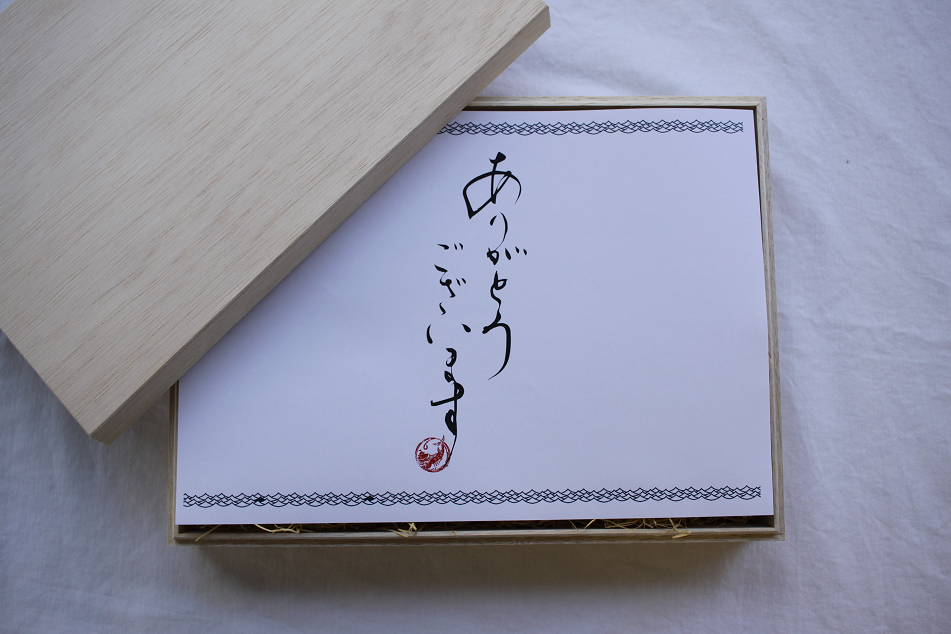 ありがとう
ございます